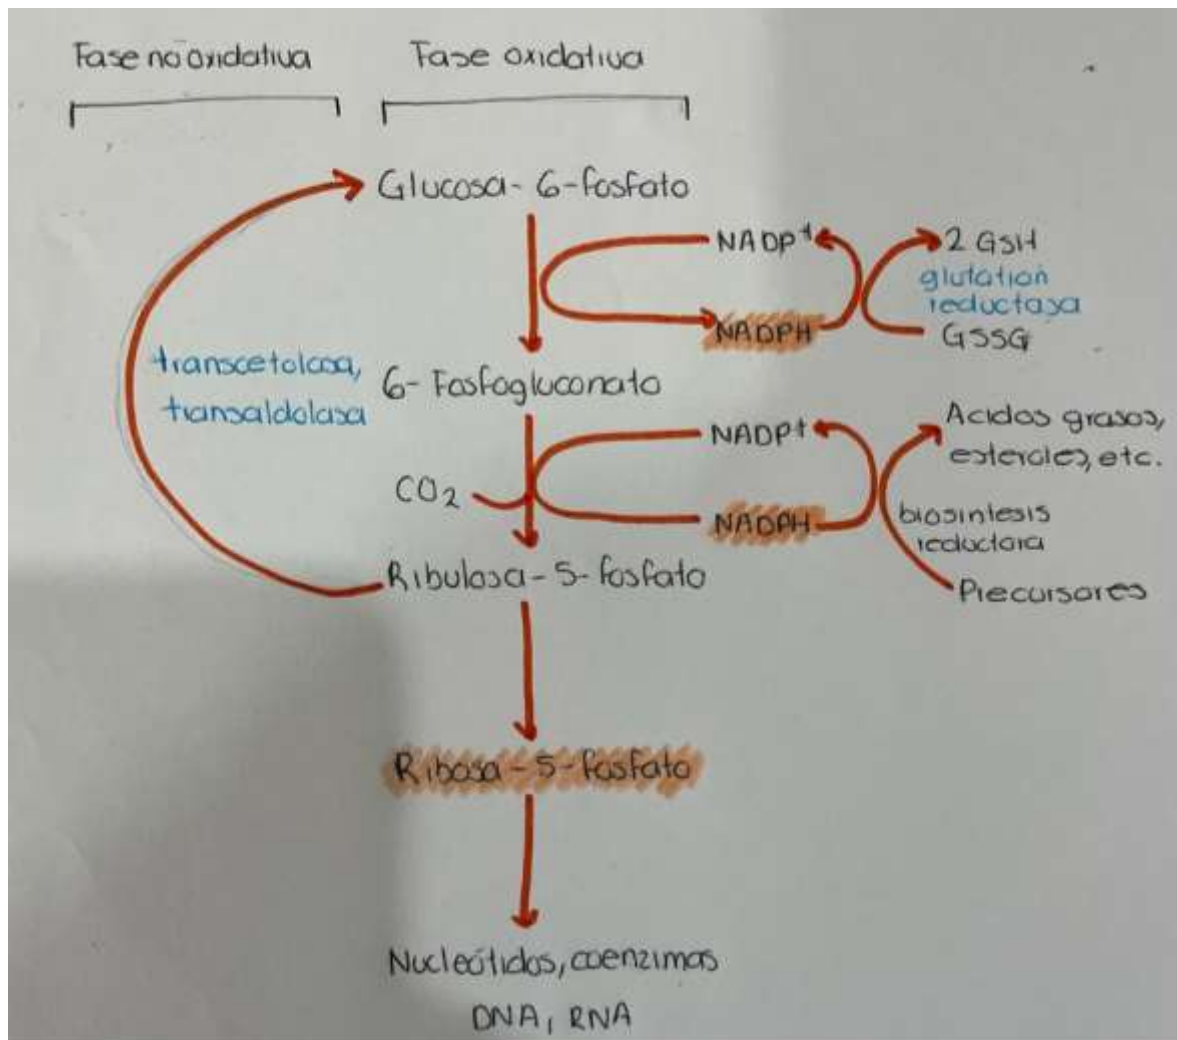 Fase no oxidativa
Fase oxidativa
Glucosa-6-fosfato
NADP+
2 GSH
glutation
reductasa
NADPH
GSSG
transcetolasa,
transaldolasa
6-Fosfogluconato
NADP+
Acidos grasos,
esteroles, etc.
CO2
NADPH
biosintesis
reductora
Ribulosa-5-fosfato
Precursores
Ribosa-5-fosfato
Nucleótidos, coenzimas
DNA, RNA